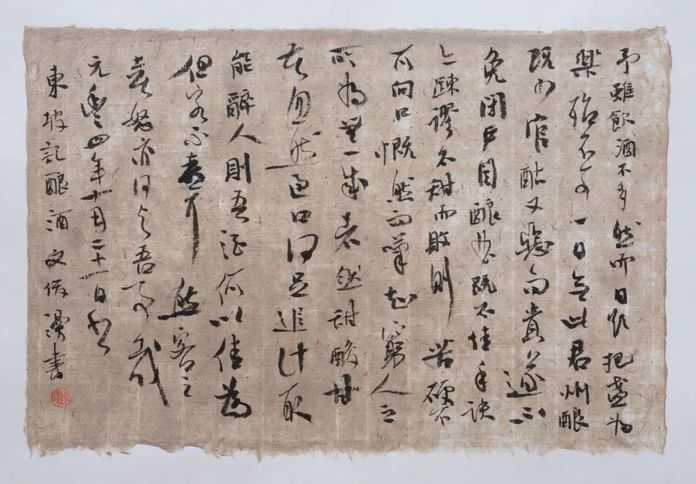 予雖飲酒不多然而日欲把盞為
樂殆不可一日無此君州釀
既少官酤又惡而貴遂不
免閉戶自釀麯既不佳手訣
亦疎謬不甜而敗則苦硬不
可向口慨然而嘆知窮人之
所為無一成者然甜酸甘
苦忽然過口何足追計取
能醉人則吾酒何以佳為
但客不喜爾然客之
喜怒亦何與吾事哉
元豐四年十月二十一日書
東坡記釀酒 文 書